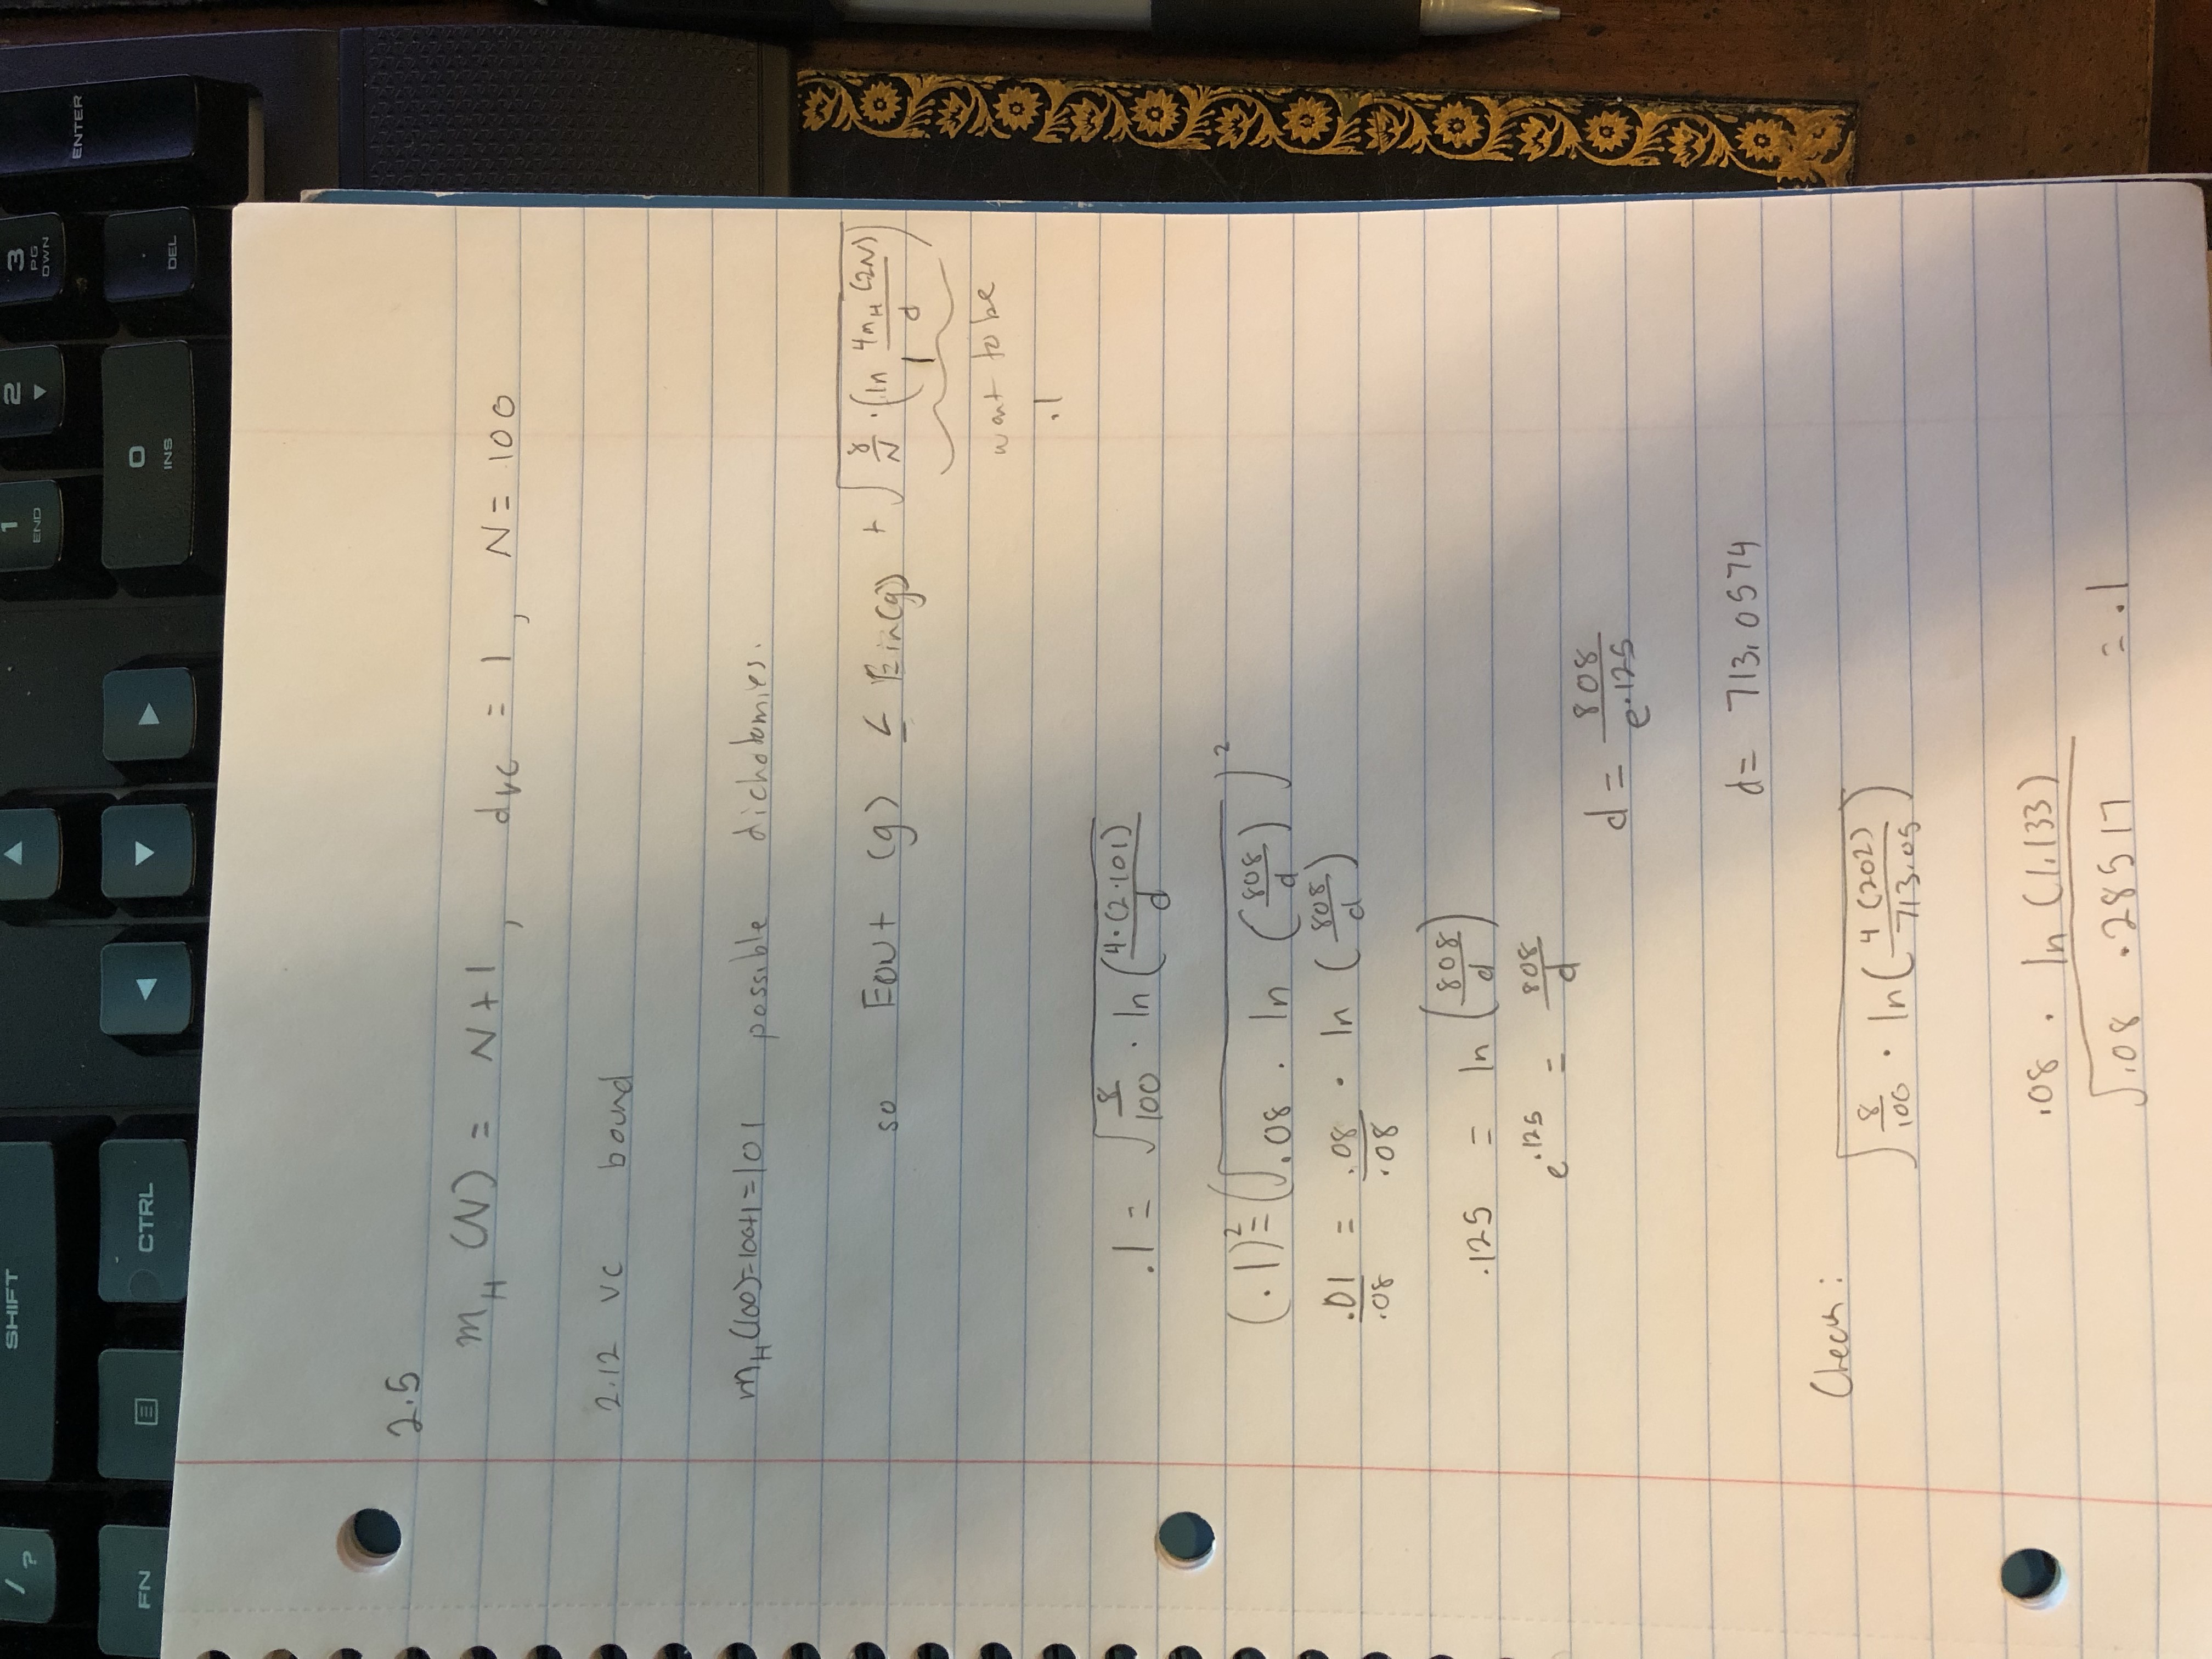 / ?
SHIFT
▲
1 END
2 ▼
3 PG DWN
ENTER
FN
CTRL
◀
▼
▶
0 INS
. DEL
2.5
m_H (N) = N+1, d_vc = 1, N = 100
2.12 VC bound
m_H(100)=100+1=101 possible dichotomies.
so Eout (g) ≤ Ein(g) + √(8/N · (ln 4m_H(2N)/d))
want to be
.1
.1 = √(8/100 · ln (4·(2·101)/d
(.1)² = (√(.08 · ln (808/d)))²
.01/.08 = .08/.08 · ln (808/d)
.125 = ln (808/d)
e^.125 = 808/d
d = 808/e^.125
d = 713.0574
Check:
√(8/100 · ln (4(202)/713.05))
.08 · ln (1.133)
√.08 .28517 = .1